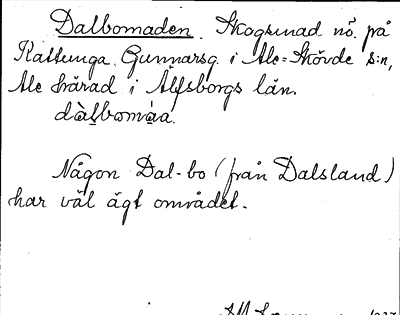 Dalbomaden. Skogsmad nö. på
Kattunga, Gunnarsg. i Ale-Skövde s:n,
Ale härad i Älfsborgs län.
dàlbomáa.
Någon Dal-bo (från Dalsland)
har väl ägt området.